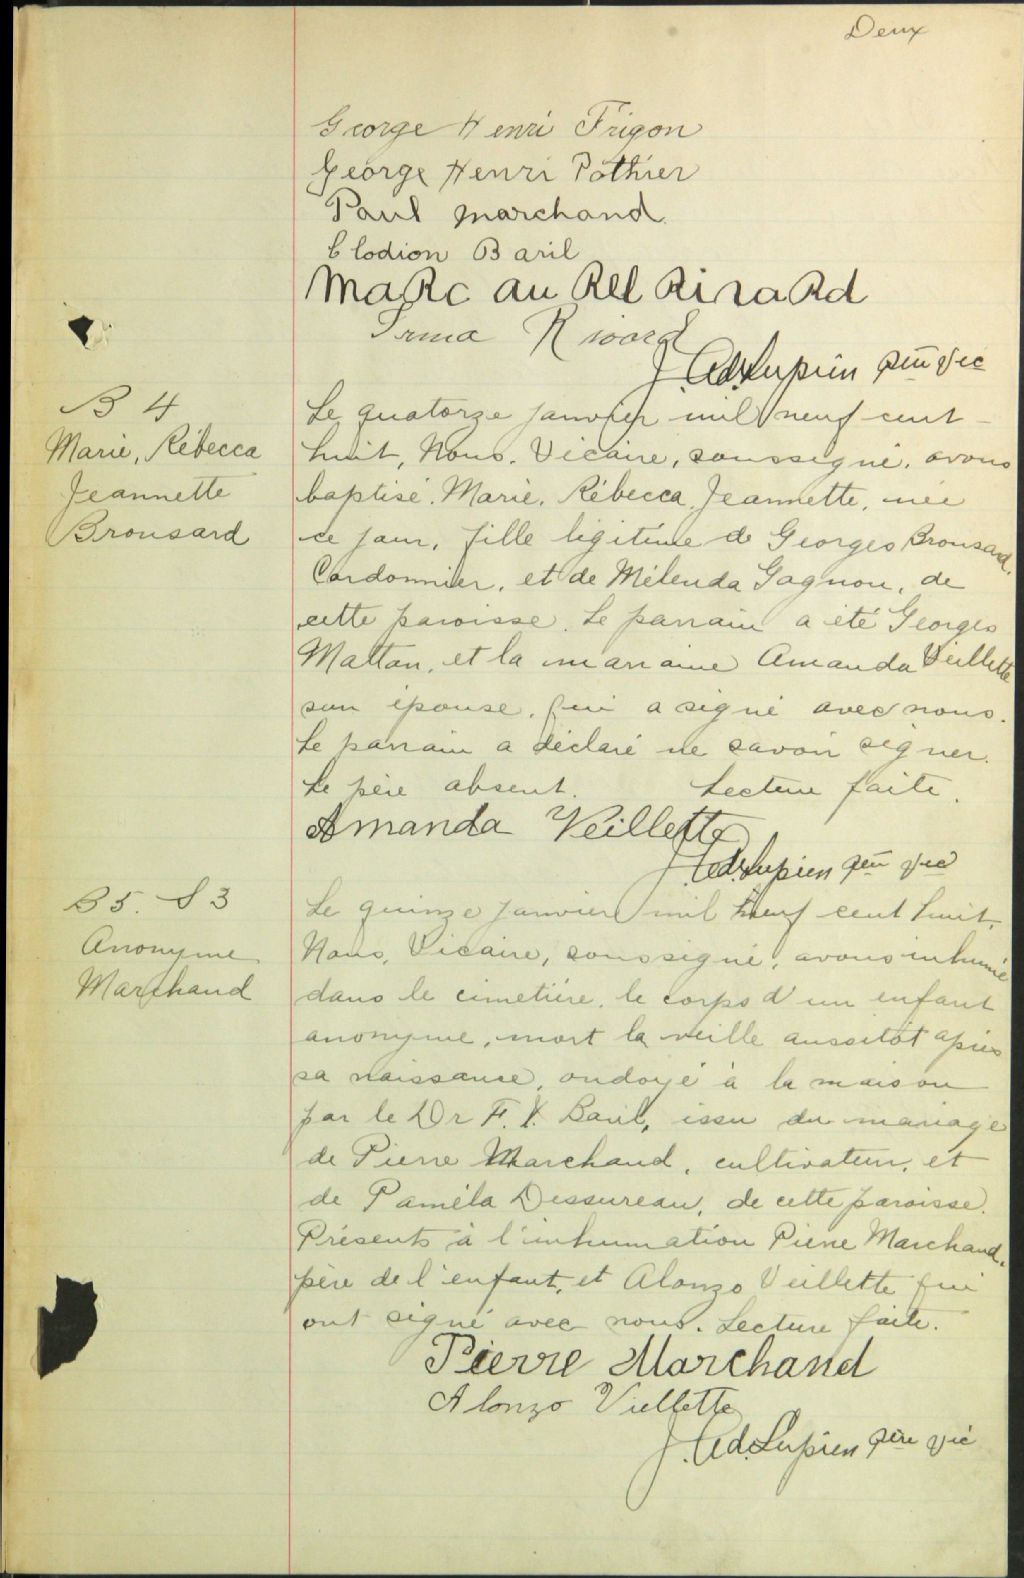 Deux
George Henri Frigon
George Henri Pothier
Paul Marchand
Clodion Baril
Marc au Rel Rivard
Irma Rivard
J. Ad. Lupien ptre vic
B 4
Marie, Rébecca
Jeannette
Brousard
Le quatorze janvier mil neuf cent
huit, Nous, Vicaire, soussigné, avons
baptisé, Marie, Rébecca, Jeannette, née
ce jour, fille légitime de Georges Brousard,
Cordonnier, et de Mélenda Gagnon, de
cette paroisse. Le parrain a été Georges
Mattan, et la marraine Amanda Veillette
son épouse, qui a signé avec nous.
Le parrain a déclaré ne savoir signer.
Le père absent. Lecture faite.
Amanda Veillette
J. Ad. Lupien ptre vic
B 5. S 3
Anonyme
Marchand
Le quinze janvier mil neuf cent huit,
Nous, Vicaire, soussigné, avons inhumé
dans le cimetière, le corps d'un enfant
anonyme, mort la veille aussitôt après
sa naissance, ondoyé à la maison
par le Dr F. X. Baril, issu du mariage
de Pierre Marchand, cultivateur, et
de Paméla Dessureau, de cette paroisse.
Présents à l'inhumation Pierre Marchand,
père de l'enfant, et Alonzo Veillette qui
ont signé avec nous. Lecture faite.
Pierre Marchand
Alonzo Viellette
J. Ad. Lupien ptre vic